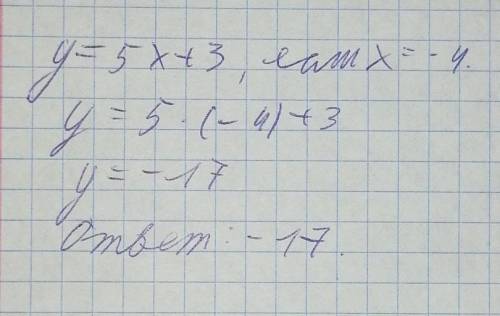 y = 5x + 3, если x = -4.
y = 5 · (-4) + 3
y = -17
Ответ: -17.